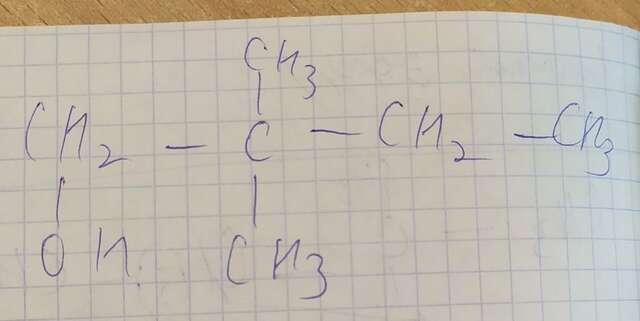 CH3
CH2 - C - CH2 - CH3
OH CH3